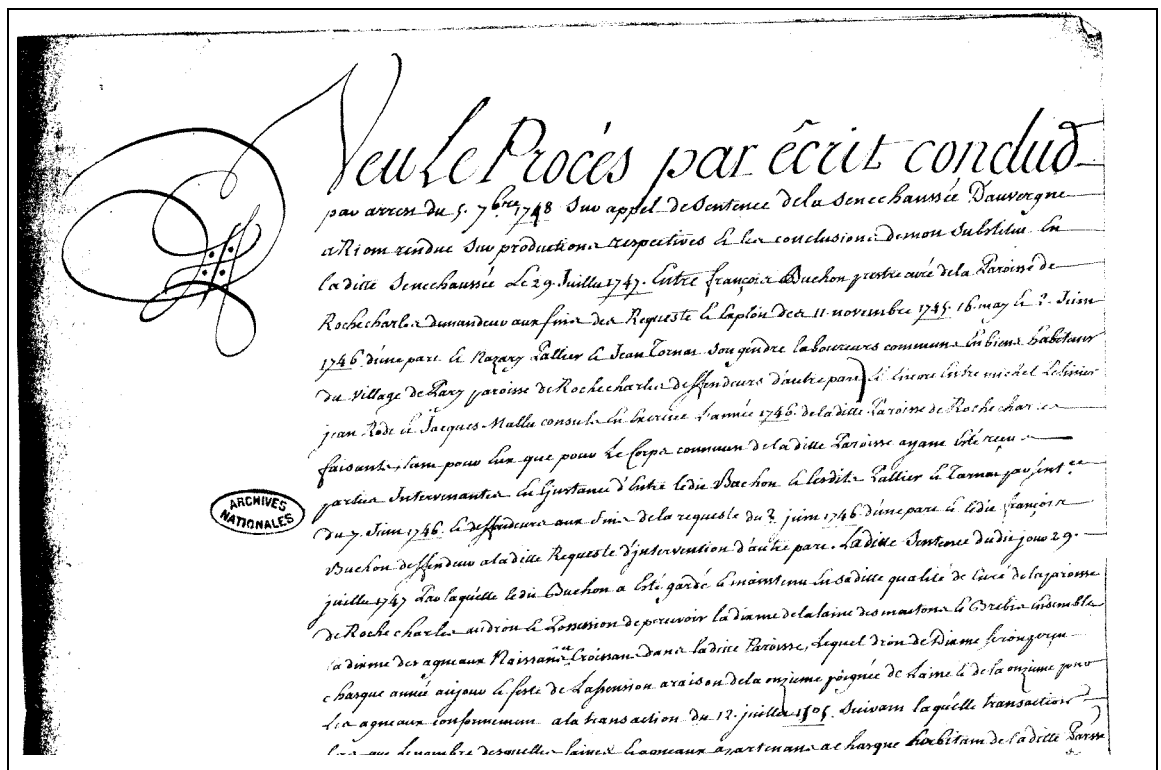 Veu Le Procès par écrit conclud
par arrest du 5. 7bre 1748 Sur appel de Sentence de la Senechaussée D'auvergne
a Riom rendue Sur productions respectives et les conclusions de mon Substitut En
la ditte Senechaussée Le 29. Juillet 1747. Entre françois Buchon prestre curé de la Paroisse de
Rochecharles demandeur aux fins des Requeste et Exploit des 11. novembre 1745. 16. may et 2. Juin
1746 d'une part et Nazary Pallier et Jean Tornas Son gendre laboureurs communs En biens habitans
du Village de Pary paroisse de Rochecharles deffendeurs d'autre part et Encore Entre michel
jean Rode et Jacques Mallet consuls En Exercice L'année 1746. de la ditte Paroisse de Rochecharles
faisants, tant pour Eux que pour Le Corps commun de la ditte Paroisse ayant Esté reçus
parties Intervenantes En L'instance d'Entre ledit Buchon et lesdits Pallier et Tarnas par sentce
du 7. Juin 1746. et deffendeurs aux fins de la requeste du 2. juin 1746 d'une part et ledit françois
Buchon deffendeur a la ditte Requeste d'intervention d'autre part. La ditte Sentence dudit jour 29.
juillet 1747 Par laquelle ledit Buchon a Esté gardé et maintenu En sa ditte qualité de Curé de la paroisse
de Rochecharles au droit et Possession de percevoir la dixme de la laine des moutons et Brebis ensemble
la dixme des agneaux Naissants et Croissans dans la ditte Paroisse, Lequel droit de Dixme seroit perçu
chaque année au jour et feste de L'assension a raison de la onzieme poignée de Laine et de la onzieme pour
Les agneaux conformement a la transaction du 12. juillet 1505. Suivant laquelle transaction
le nombre desquelles laines et agneaux apartenans a chaque habitant de la ditte Paroisse
ARCHIVES
NATIONALES